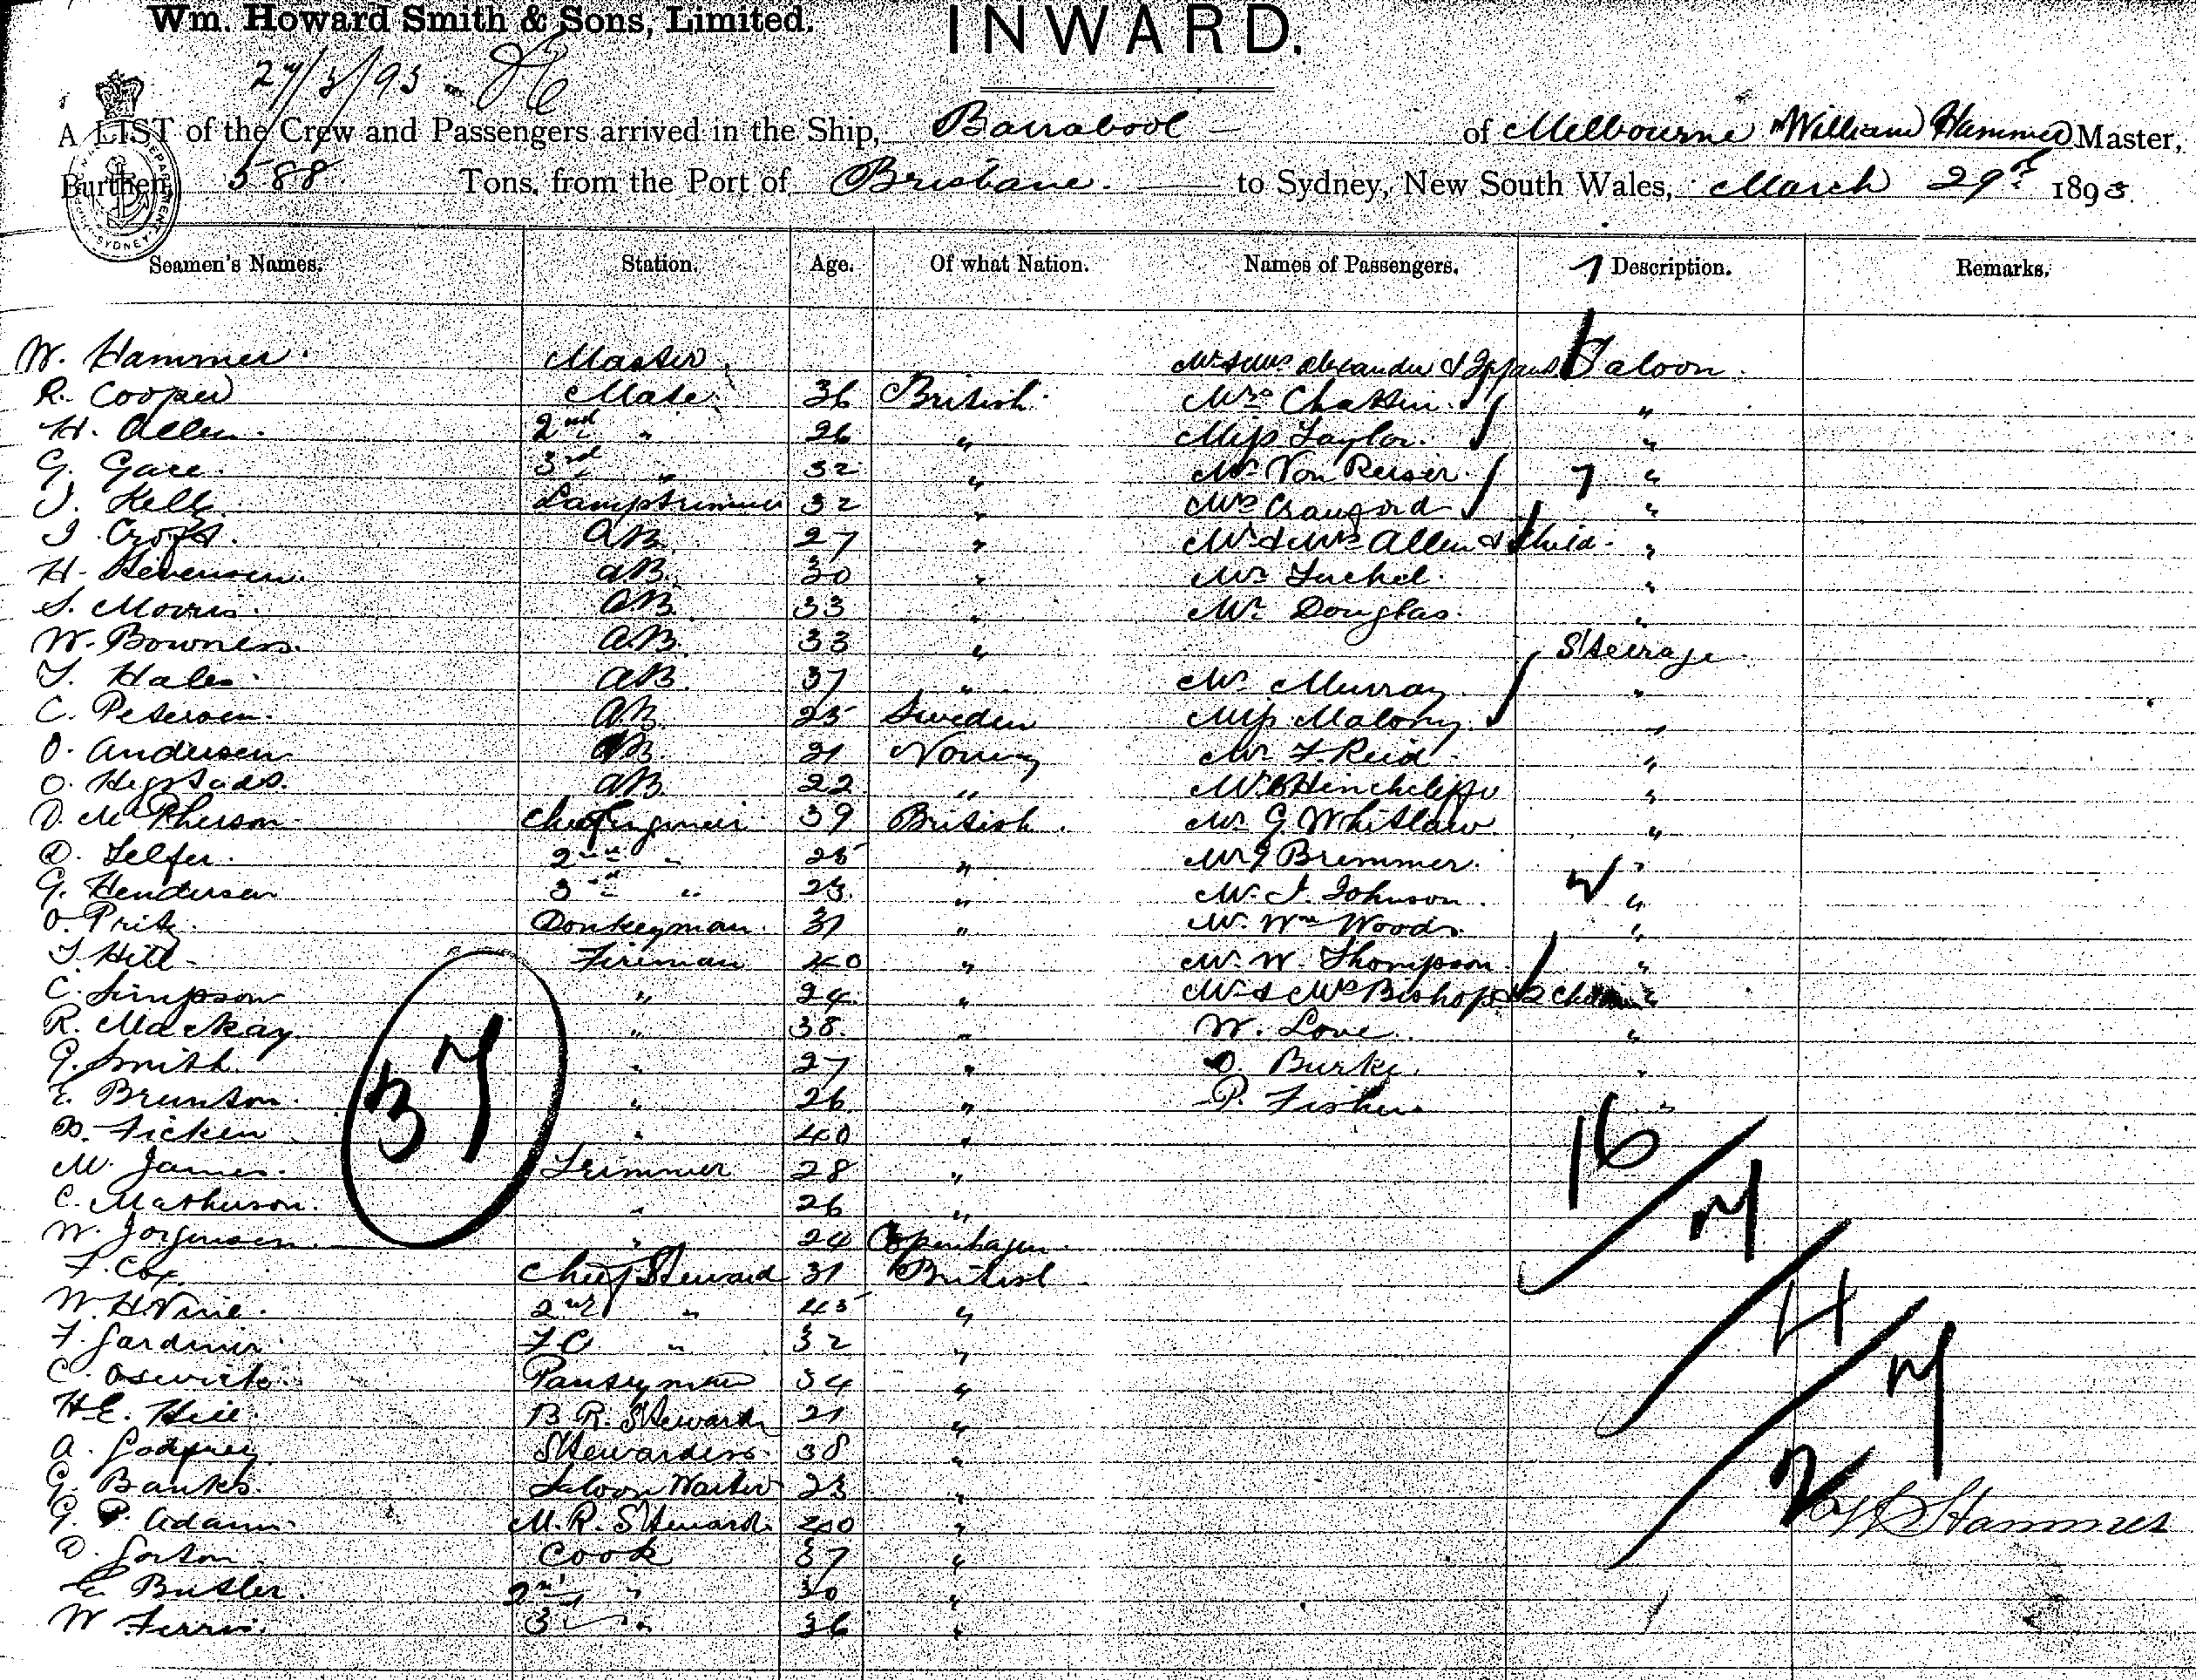 Wm. Howard Smith & Sons, Limited.
INWARD.
27/3/93
A LIST of the Crew and Passengers arrived in the Ship, Barrabool of Melbourne William Hammer Master,
Burthen 588 Tons, from the Port of Brisbane. to Sydney, New South Wales, March 29th 1893.
Seamen's Names. Station. Age. Of what Nation. Names of Passengers. 7 Description. Remarks.
W. Hammer Master Mr & Mrs Alexander & Infant Saloon.
R. Cooper Mate 36 British Mrs Chattin. "
H. Allen. 2nd " 26 " Miss Taylor. "
G. Gare. 3rd " 32 " Mr Von Reiser. 7 "
J. Kelly Lamptrimmer 32 " Mrs Crauford "
J. Croft. AB. 27 " Mr & Mrs Allen & Child. "
H. Stevensen. AB. 30 " Mr Tuchel. "
S. Morris. AB. 33 " Mr. Douglas. "
W. Bowness. AB. 33 " Steerage
T. Hales. AB. 37 " Mr. Murray. "
C. Petersen. AB. 25 Sweden Miss Malony. "
O. Andersen AB. 21 Norway Mr. F. Reid. "
O. AB. 22 " Mr Hinchcliffe "
D. McPherson Chief Engineer 39 British. Mr. G Whitlaw "
D. Telfer. 2nd " 25 " Mr J Bremmer. "
G. Henderson 3rd " 23. " Mr. J. Johnson. "
O. Donkeyman. 31 " Mr. Wm Woods. "
T. Hill Fireman 40 " Mr. W. Thompson. "
C. Simpson " 24. " Mr & Mrs Bishop & 2 "
R. Mackay. " 38. " W. Love. "
G. Smith. " 27 " D. Burke. "
E. Brunton. " 26 " P. Fisher "
D. Ficken " 40 "
37
M. James. Trimmer 28 " 16
C. Matheson. " 26 " 7
W. Jorgensen. " 24 Copenhagen.
F. Cox. Chief Steward 31 British
W. H. Vine. 2nd " 45 " 4
F. Gardiner F.C " 32 " 7
C. Pantryman 34 "
H.E. Hill. B. R. Steward 21 "
A. Godfrey Stewardess. 38 " 2
G. Banks. Saloon Waiter 23 "
G. P. Adams. M. R. Steward. 40 " W Hammer
D. Gorton Cook 37 "
E. Butler. 2nd " 30 "
W Ferris. 3 " 36 "